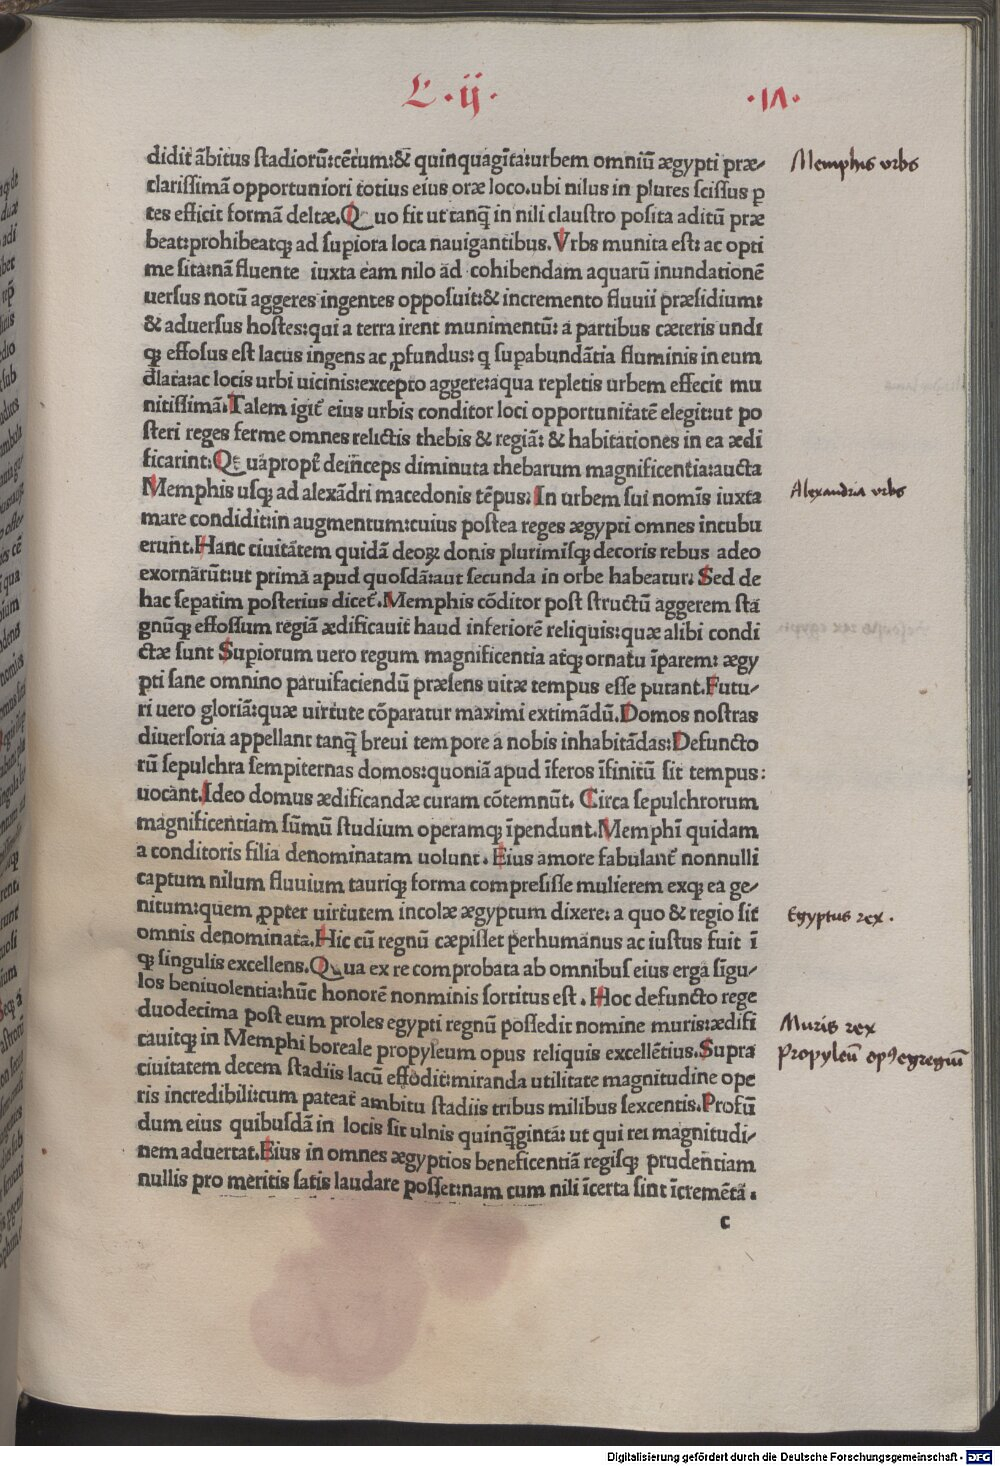 L · ij ·
· 17 ·
didit ãbitus stadiorũ:cẽtum:& quinquagĩta:urbem omniũ ægypti præ-
clarissimã opportuniori totius eius oræ loco.ubi nilus in plures scissus ꝑ
tes efficit formã deltæ.Quo fit ut tanq̃ in nili claustro posita aditũ præ
beat:prohibeatq; ad supiora loca nauigantibus.Vrbs munita est: ac opti
me sita:nã fluente iuxta eam nilo ad cohibendam aquarũ inundationẽ
uersus notũ aggeres ingentes opposuit:& incremento fluuii præsidium:
& aduersus hostes:qui a terra irent munimentũ: a partibus cæteris undi
q; effosus est lacus ingens ac ꝓfundus: q supabundãtia fluminis in eum
dlata:ac locis urbi uicinis:excepto aggere:aqua repletis urbem effecit mu
nitissimã.Talem igit̃ eius urbis conditor loci opportunitatẽ elegit:ut po
steri reges ferme omnes relictis thebis & regiã: & habitationes in ea ædi
ficarint:Quapropt̃ deinceps diminuta thebarum magnificentia:aucta
Memphis usq; ad alexãdri macedonis tẽpus: In urbem sui nomĩs iuxta
mare condidit:in augmentum:cuius postea reges ægypti omnes incubu
erunt.Hanc ciuitãtem quidã deoꝝ donis plurimisq; decoris rebus adeo
exornarũt:ut prima apud quosdã:aut secunda in orbe habeatur: Sed de
hac sepatim posterius dicet̃.Memphis cõditor post structũ aggerem sta
gnũq; effossum regiã ædificauit haud inferiorẽ reliquis:quæ alibi condi
ctæ sunt Supiorum uero regum magnificentia atq; ornatu ĩparem: ægy
pti sane omnino paruifaciendũ præsens uitæ tempus esse putant.Futu-
ri uero gloriã:quæ uirtute cõparatur maximi extimãdũ.Domos nostras
diuersoria appellant tanq̃ breui tempore a nobis inhabitãdas:Defuncto
rũ sepulchra sempiternas domos:quoniã apud ĩferos ĩfinitũ sit tempus:
uocant.Ideo domus ædificandæ curam cõtemnũt. Circa sepulchrorum
magnificentiam sũmũ studium operamq; ĩpendunt.Memphĩ quidam
a conditoris filia denominatam uolunt. Eius amore fabulant̃ nonnulli
captum nilum fluuium tauriq; forma compresisse mulierem exq; ea ge-
nitum:quem ꝓpter uirtutem incolæ ægyptum dixere: a quo & regio sit
omnis denominata.Hic cũ regnũ cæpisset perhumanus ac iustus fuit ĩ
q; singulis excellens.Qua ex re comprobata ab omnibus eius erga sigu-
los beniuolentia:hũc honorẽ nonminis sortitus est . Hoc defuncto rege
duodecima post eum proles egypti regnũ possedit nomine muris:ædifi
cauitq; in Memphi boreale propyleum opus reliquis excellẽtius.Supra
ciuitatem decem stadiis lacũ effodit:miranda utilitate magnitudine ope
ris incredibili:cum pateat ambitu stadiis tribus milibus sexcentis.Profũ
dum eius quibusdã in locis sit ulnis quinq̃gintã: ut qui rei magnitudi-
nem aduertat.Eius in omnes ægyptios beneficentiã regisq; prudentiam
nullis pro meritis satis laudare posset:nam cum nili ĩcerta sint ĩcremẽta .
c
Memphis vrbs
Alexandria vrbs
Egyptus rex .
Muris rex
Propyleũ opꝰ egregiũ
Digitalisierung gefördert durch die Deutsche Forschungsgemeinschaft - DFG